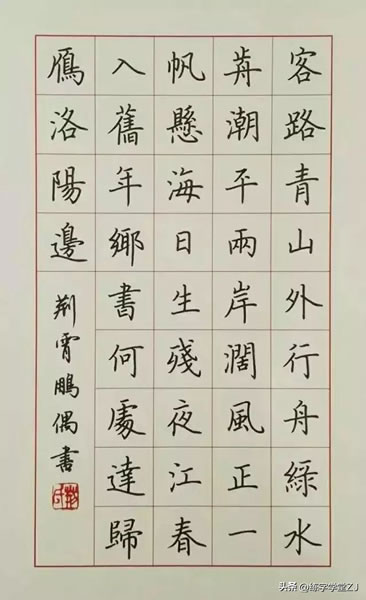 客路青山外行舟綠水
歬潮平兩岸濶風正一
帆懸海日生殘夜江春
入舊年鄉書何處達歸
鴈洛陽邊
荆霄鵬偶書
头条 @练字学堂ZJ